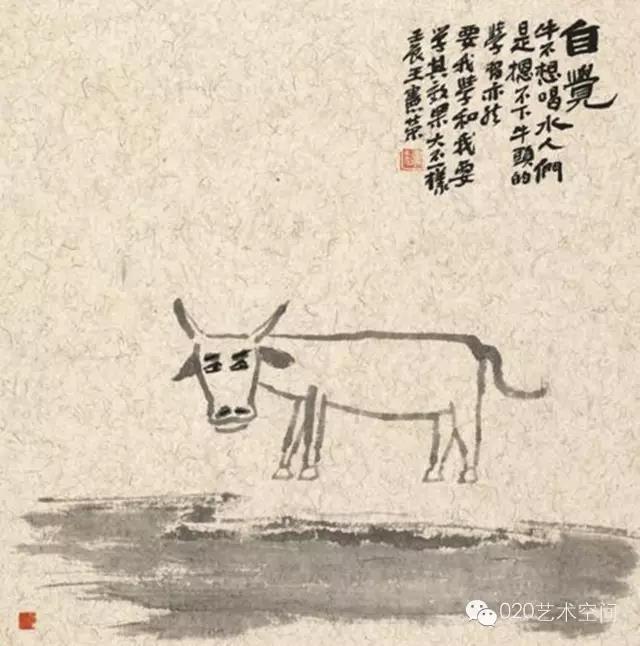 自覺
牛不想喝水人們
是摁不下牛頭的
學習亦然
要我學和我要
学其效果大不一樣
壬辰王憲榮
020艺术空间